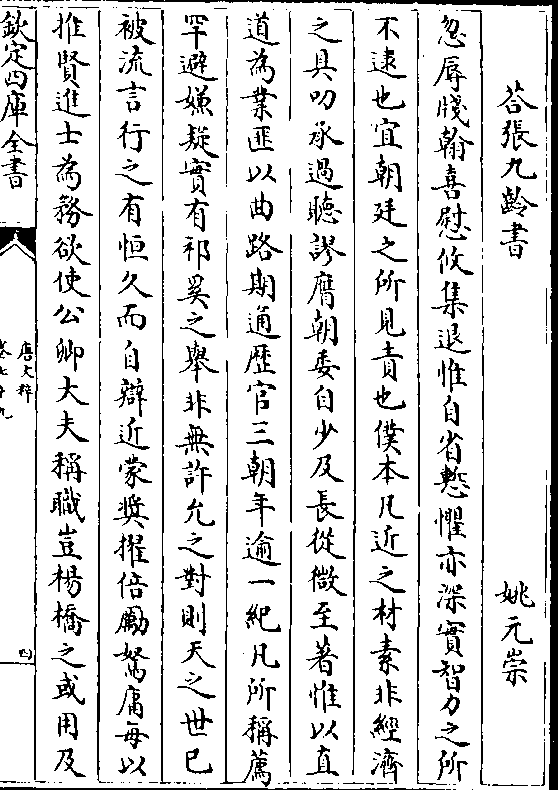 荅張九齡書　姚元崇
忽辱牋翰喜慰攸集退惟自省慙懼亦深實智力之所
不逮也宜朝廷之所見責也僕本凡近之材素非經濟
之具叨承過聽謬膺朝委自少及長從微至著惟以直
道為業匪以曲路期通歴官三朝年逾一紀凡所稱薦
罕避嫌疑實有祁奚之舉非無許允之對則天之世已
被流言行之有恒久而自辯近蒙奬擢倍勵駑庸每以
推賢進士為務欲使公卿大夫稱職豈楊橋之或用及
欽定四庫全書
唐文粹
卷七十九
四